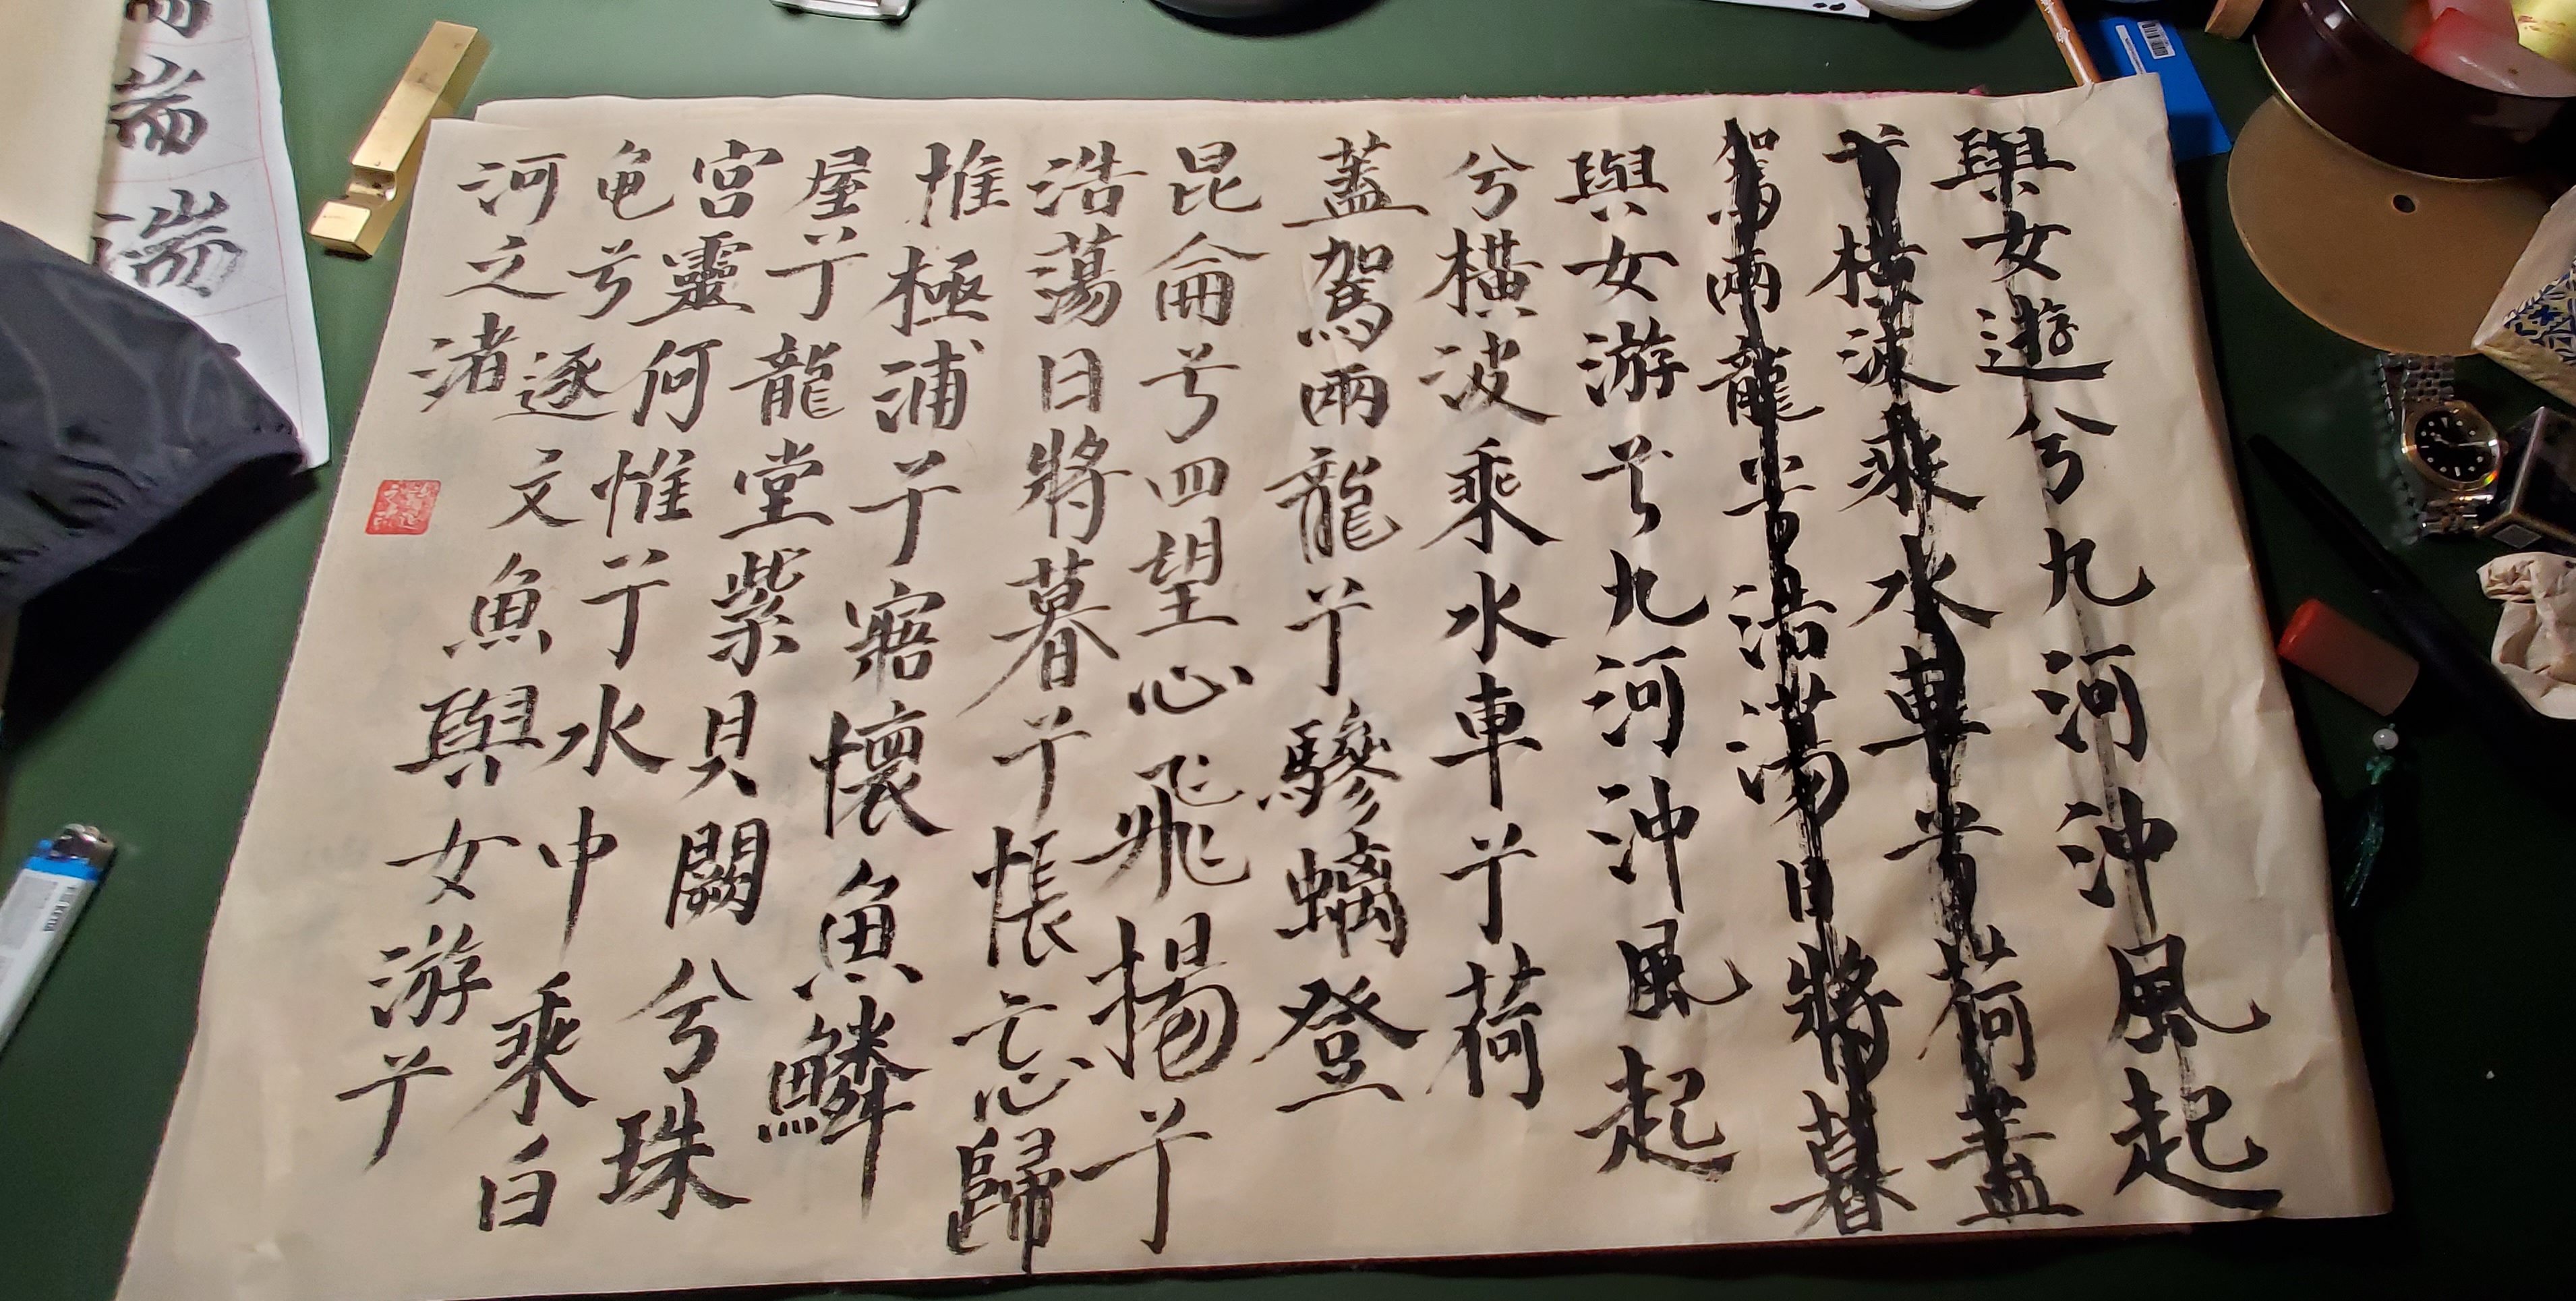 與女遊兮九河沖風起
兮橫波乘水車兮荷蓋
駕兩龍兮浩蕩日將暮
與女游兮九河沖風起
兮橫波乘水車兮荷
蓋駕兩龍兮驂螭登
昆侖兮四望心飛揚兮
浩蕩日將暮兮悵忘歸
惟極浦兮寤懷魚鱗
屋兮龍堂紫貝闕兮珠
宮靈何惟兮水中乘白
黿兮逐文魚與女游兮
河之渚
端
端